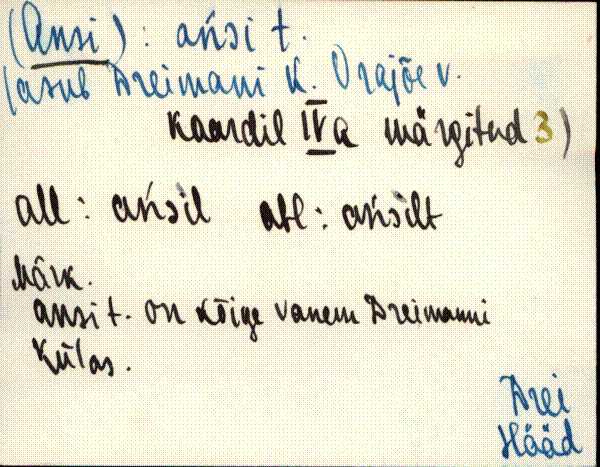 (Ansi): ańsi t.
(asub Dreimani k. Orajõe v.
kaardil IVa märgitud 3)
all: ańsil abl: ańsilt
Märk.
ansi t. on kõige vanem Dreimanni
külas.
Drei
Hääd